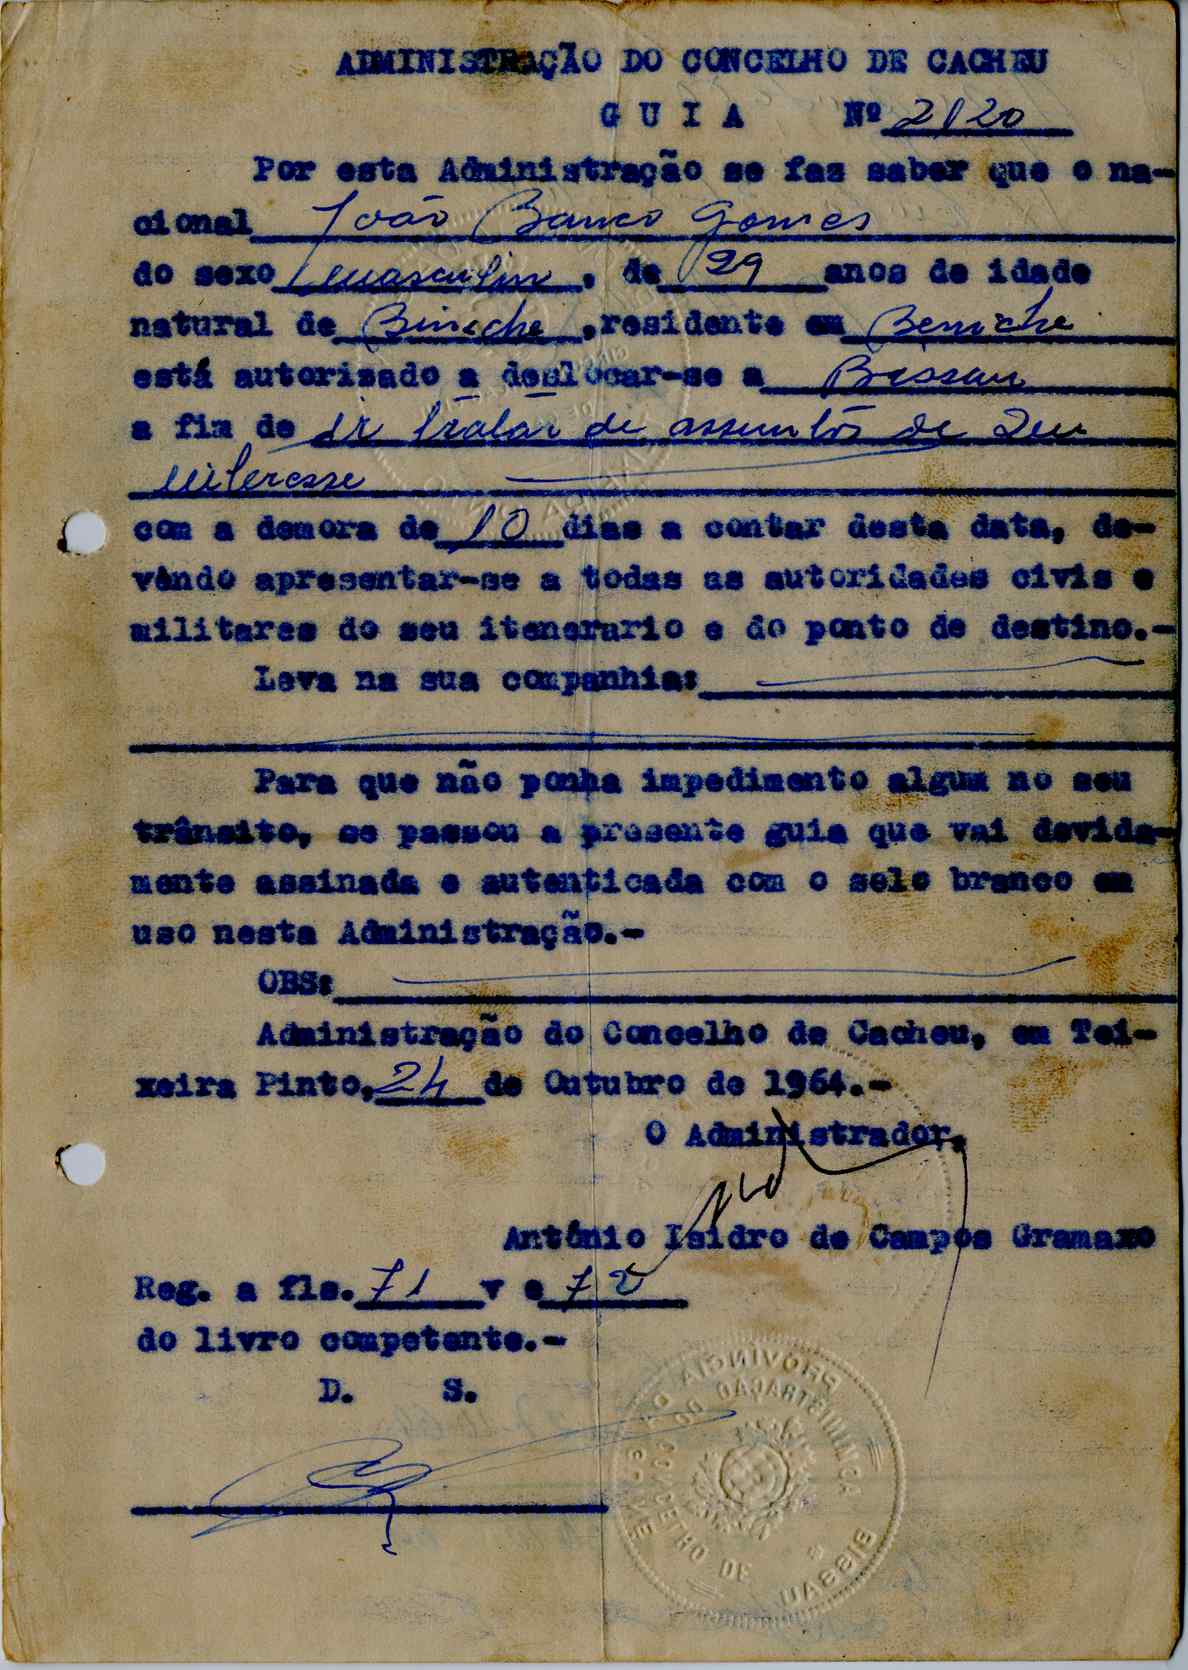 ADMINISTRAÇÃO DO CONCELHO DE CACHEU
G U I A Nº 2120
Por esta Administração se faz saber que o na-
cional João Banco Gomes
do sexo masculino, de 29 anos de idade
natural de Binche, residente em Beniche
está autorizado a deslocar-se a Bissau
a fim de ir tratar de assuntos de seu
interesse
com a demora de 10 dias a contar desta data, de-
vêndo apresentar-se a todas as autoridades civis e
militares do seu itenerario e do ponto de destino.-
Leva na sua companhia:
Para que não ponha impedimento algum no seu
trânsito, se passou a presente guia que vai devida-
mente assinada e autenticada com o selo branco em
uso nesta Administração.-
OBS:
Administração do Concelho de Cacheu, em Tei-
xeira Pinto, 24 de Outubro de 1964.-
O Administrador,
António Isidro de Campos Gramaxo
Reg. a fls. 71 v e 72
do livro competente.-
D. S.
PROVINCIA DA GUINÉ
ADMINISTRAÇÃO DO CONCELHO DE
BISSAU